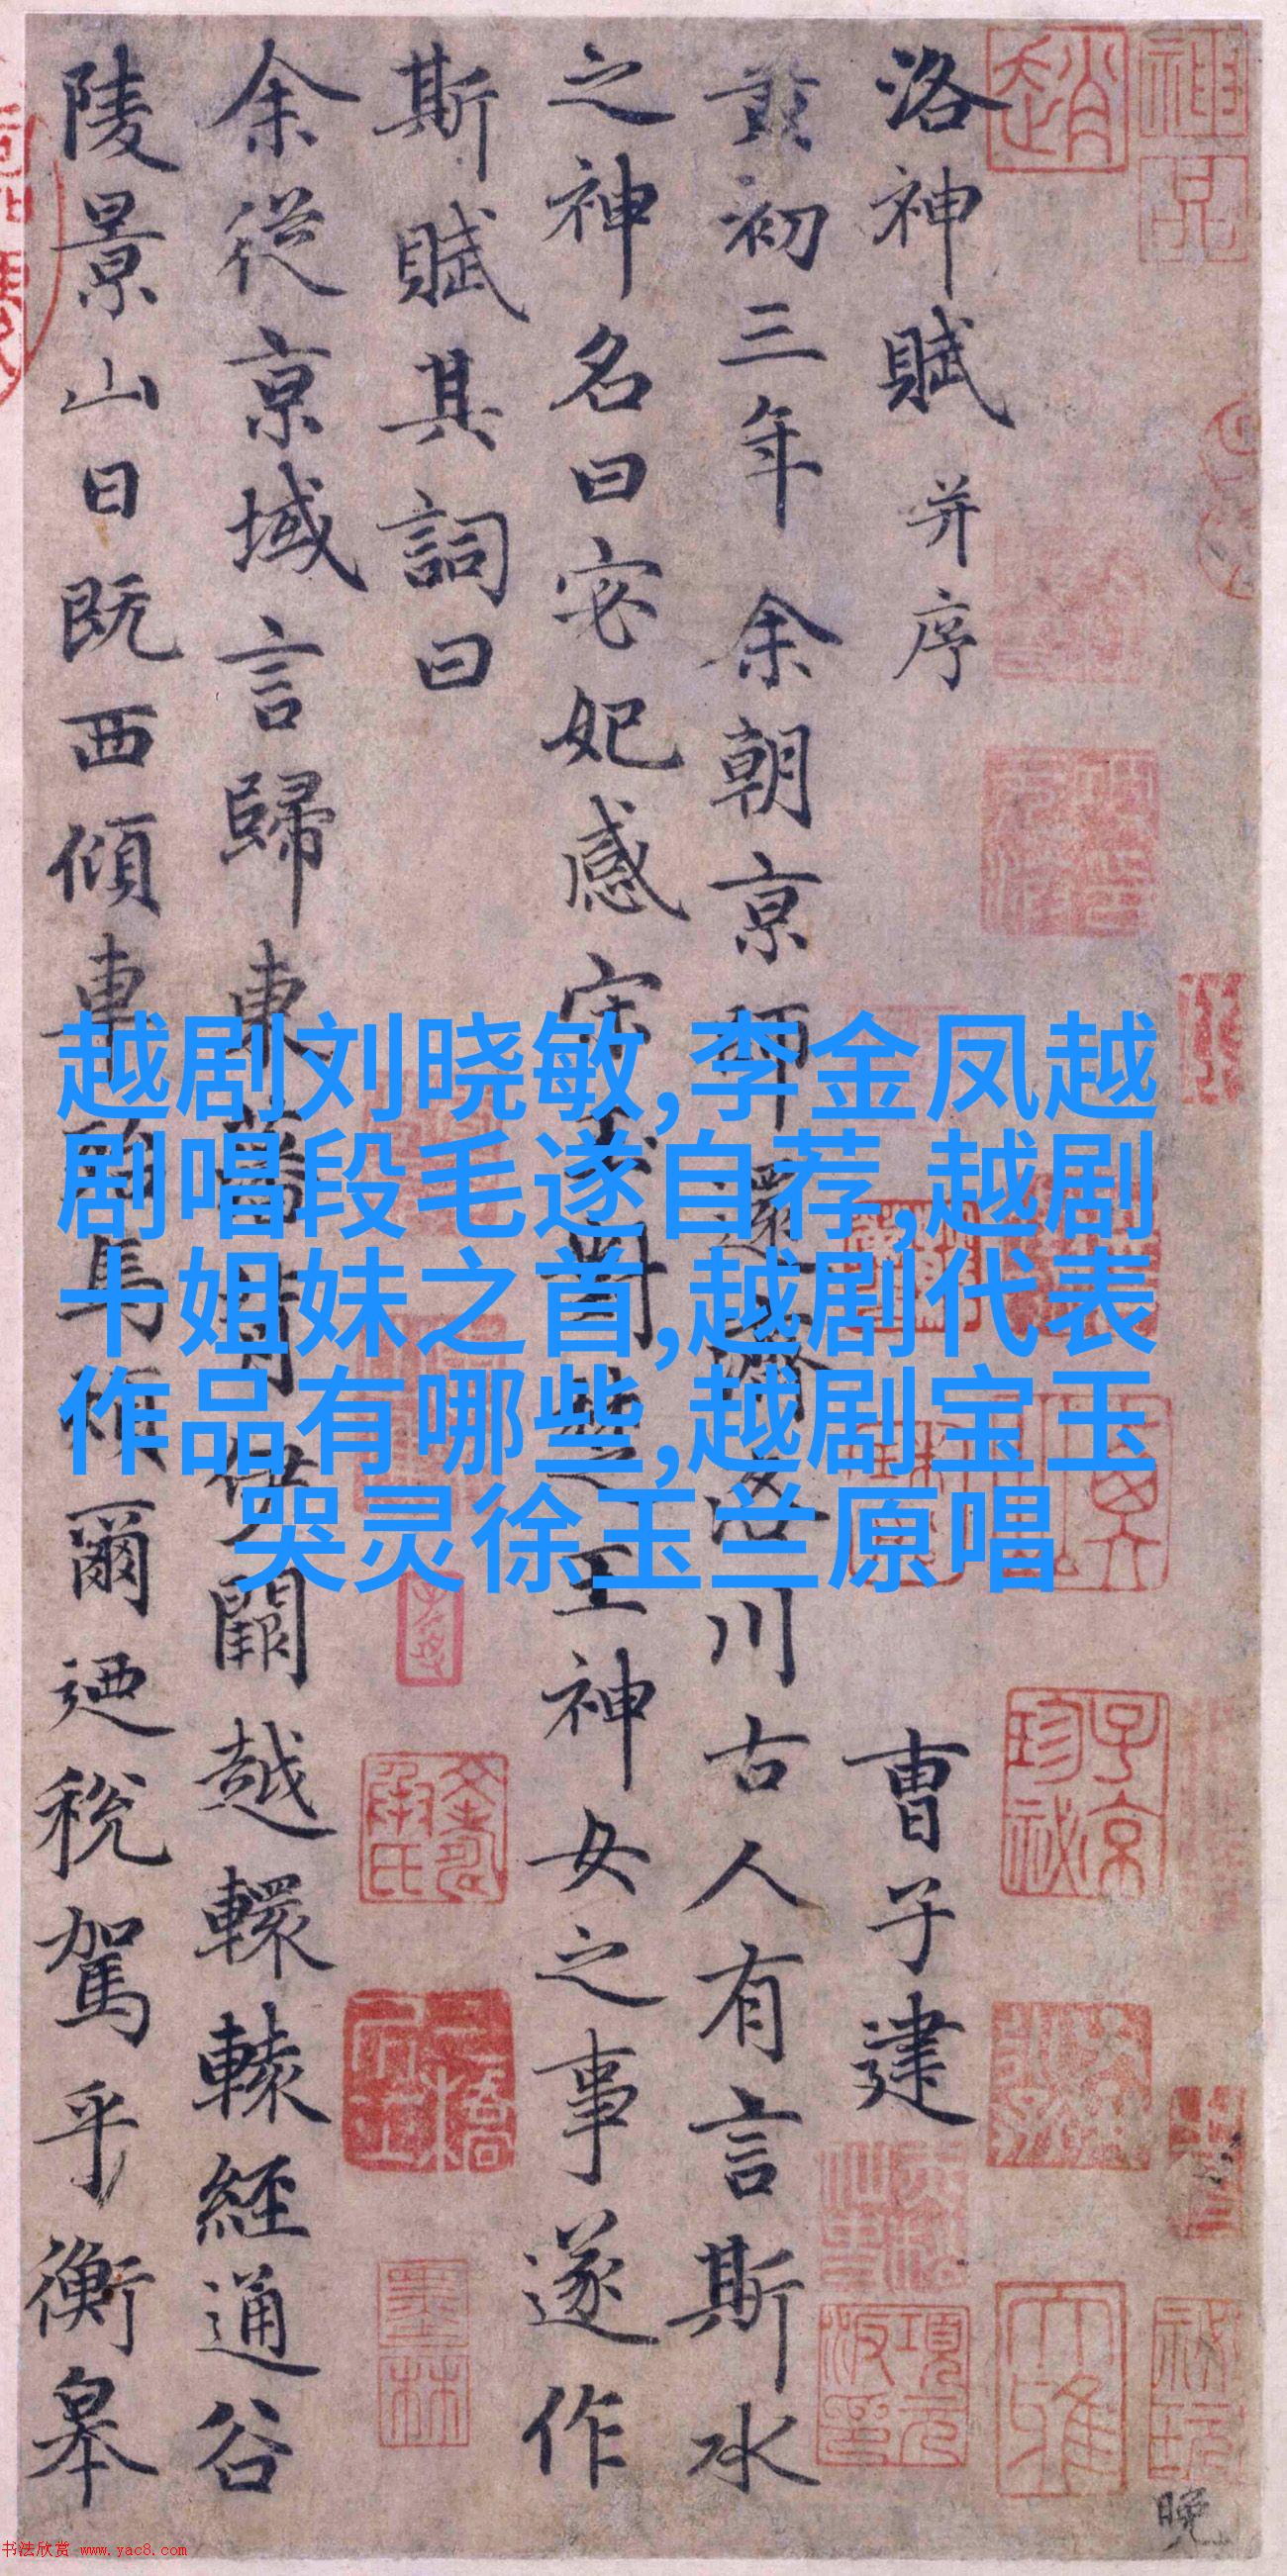 洛神賦 并序 曹子建
黃初三年余朝京師還濟洛川古人有言斯水
之神名曰宓妃感宋玉對楚王神女之事遂作
斯賦其詞曰
余從京域言歸東藩背伊闕越轘轅經通谷
陵景山日既西傾車殆馬煩爾迺稅駕乎衡皋
越剧刘晓敏,李金凤越
剧唱段毛遂自荐,越剧
十姐妹之首,越剧代表
作品有哪些,越剧宝玉
哭灵徐玉兰原唱
晚
子京
珍祕
項元
汴印
墨林
书法欣赏 www.yac8.com